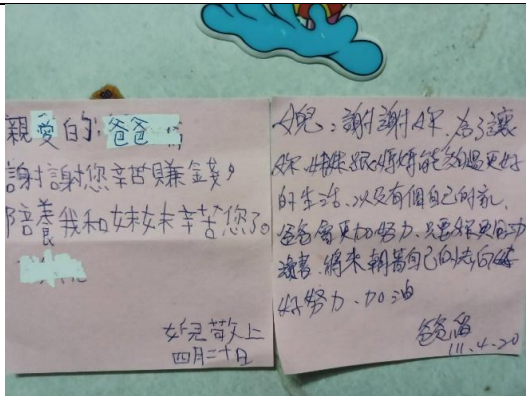 親愛的:爸爸
謝謝您辛苦賺錢,
陪養我和妹妹辛苦您了。
女兒敬上
四月二十日
女兒:謝謝妳,為了讓
妳、妹妹跟媽媽能夠過更好
的生活,以及有個自己的家,
爸爸會更加努力,只要妳更用功
讀書、將來朝著自己的方向
好努力、加油
爸爸留
111.4.20